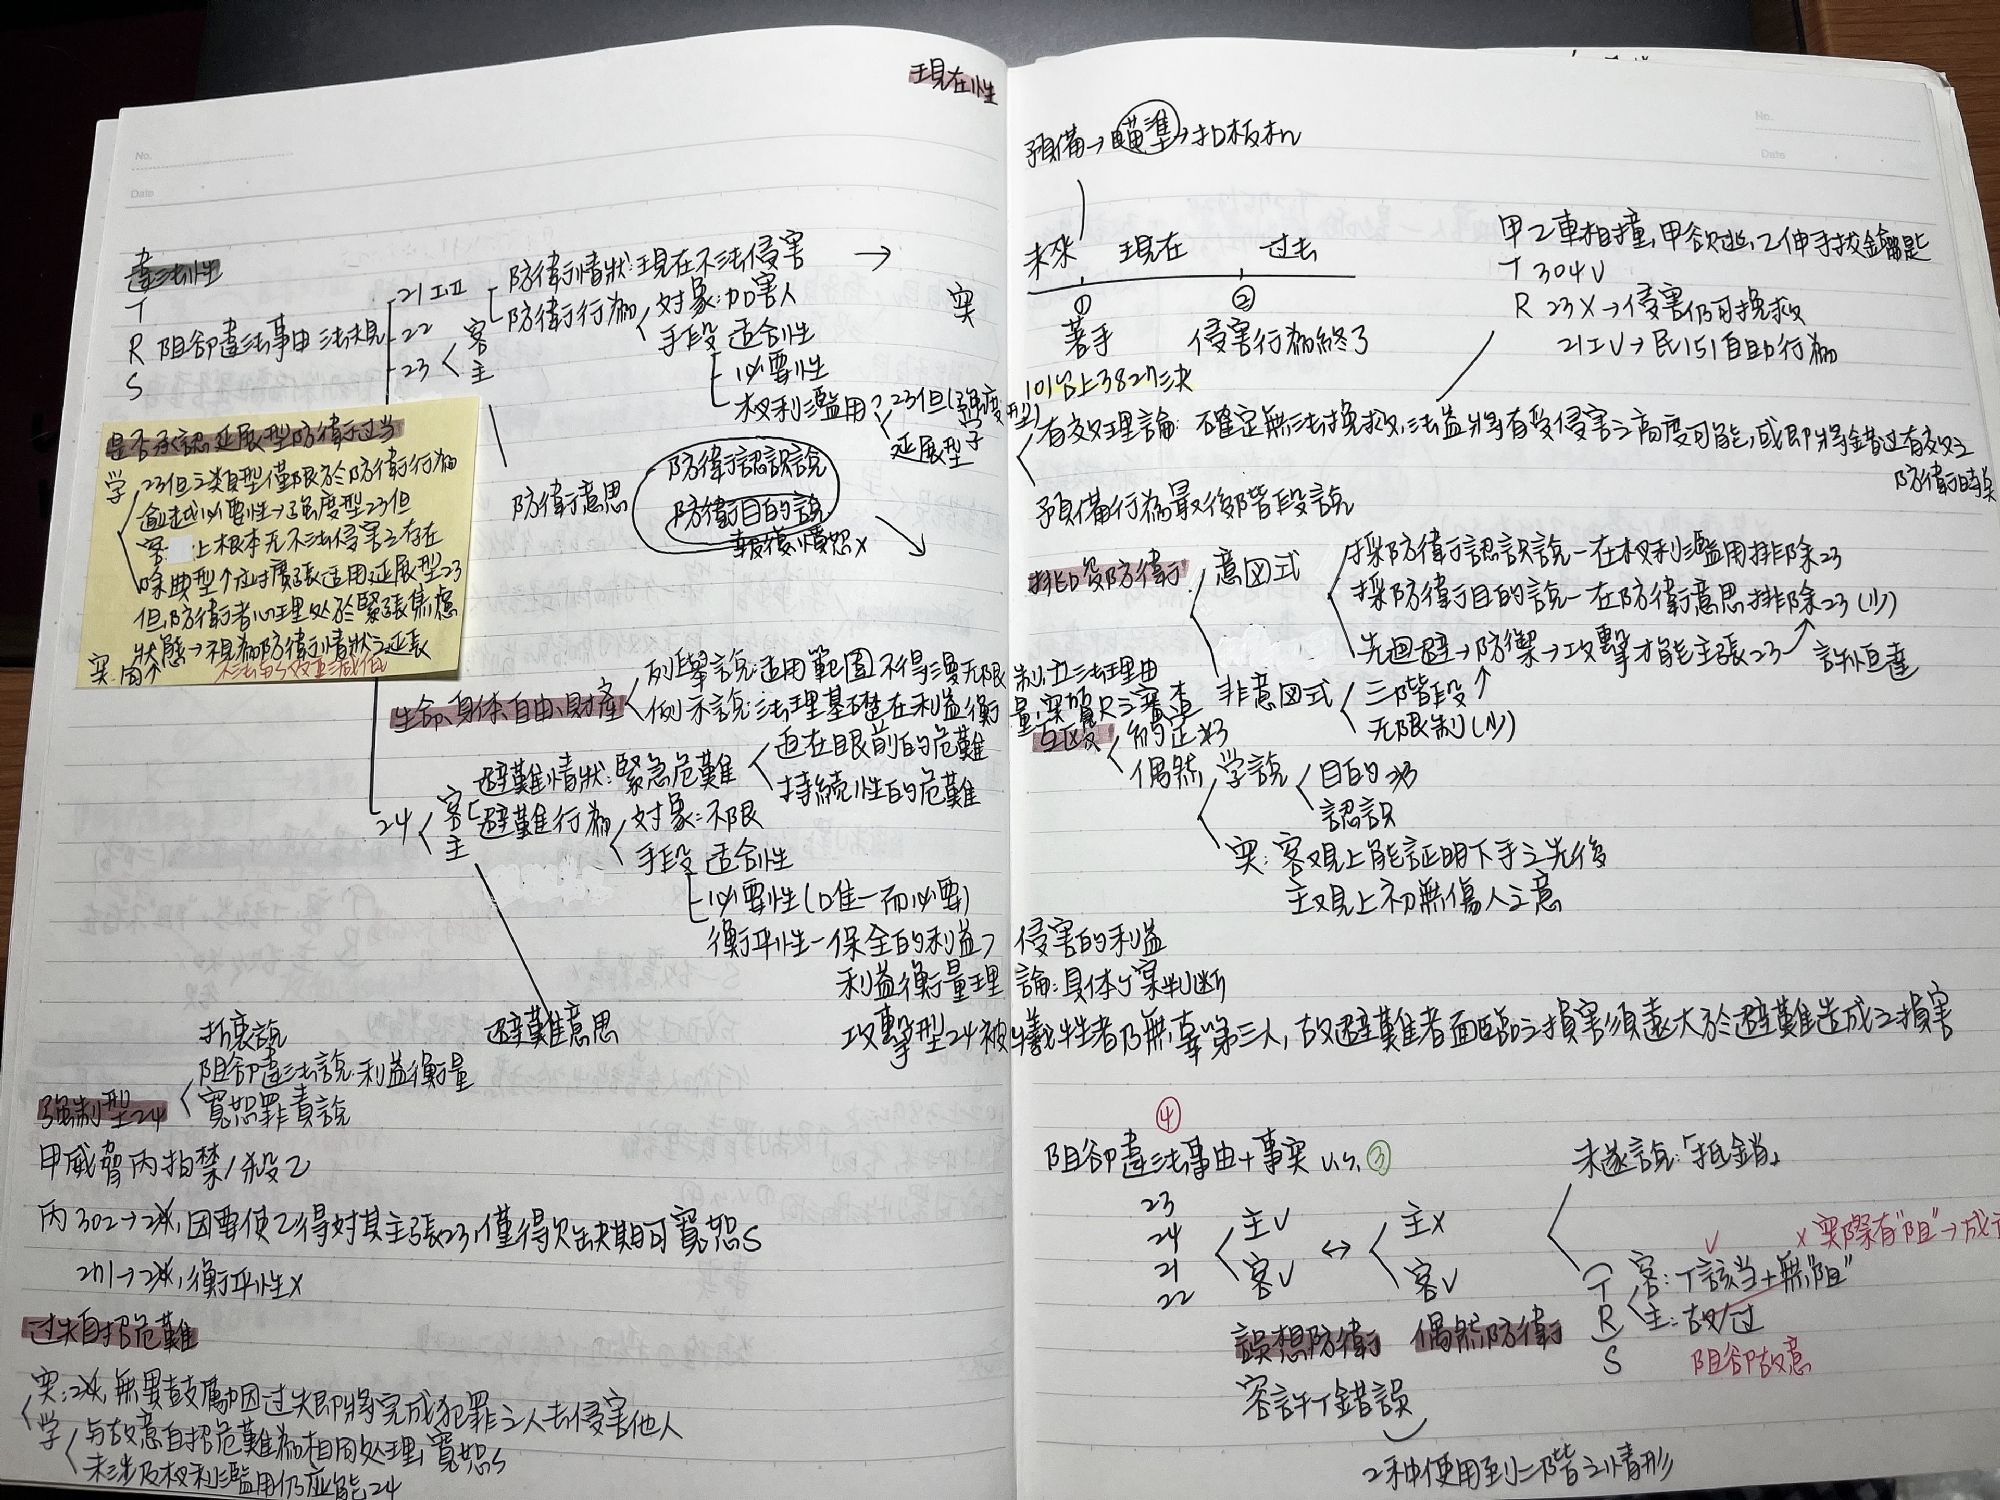 現在性
No.
Date
違法性
T
R 阻卻違法事由 法規
S
21ⅠⅡ
22
23 客
主
防衛情狀:現在不法侵害 →
防衛行為 对象:加害人
手段 适合性
必要性
权利濫用? 23但(强度型)
延展型
实
学
防衛意思
防衛認識說
防衛目的說
報復、憤怒x
是否承認延展型防衛过当
学 23但之類型僅限於防衛行為
逾越必要性→强度型23但
客 上根本无不法侵害之存在
除典型外应擴張适用延展型23
但,防衛者心理处於緊張焦慮
狀態→視為防衛情狀之延長
实:同↑ 不法与
生命、身体、自由、財產
列舉說:适用範圍不得漫无限制,立法理由
例示說:法理基礎在利益衡量,实質R之審查
24 客 避難情狀:緊急危難
迫在眼前的危難
持续性的危難
避難行為 对象:不限
主
手段 适合性
必要性(唯一而必要)
衡平性-保全的利益> 侵害的利益
利益衡量理論:具体个案判断
攻擊型24被犧牲者乃無辜第三人,故避難者面臨之損害須遠大於避難造成之損害
避難意思
折衷說
强制型24
阻卻違法說:利益衡量
寬恕罪責說
甲威脅丙拍禁/殺乙
丙302→24x,因要使乙得对其主張23,僅得欠缺期可寬恕S
271→24x,衡平性x
过失自招危難
实:24x,無異鼓勵因过失即將完成犯罪之人去侵害他人
学 与故意自招危難為相同处理,寬恕S
未涉及权利濫用仍应能24
No.
Date
預備→瞄準→扣板机
未來 現在 过去
① ②
著手 侵害行為終了
甲乙車相撞,甲欲逃,乙伸手拔金鑰匙
T 304V
R 23X→侵害仍可挽救
21ⅠV→民151自助行為
101台上3827決
有效理論:不確定無法挽救,法益將有受侵害之高度可能,或即將錯过有效之
防衛時点
預備行為最後階段說
挑唆防衛 意図式
採防衛認識說-在权利濫用排除23
採防衛目的說-在防衛意思排除23(少)
先迴避→防禦→攻擊才能主張23
非意図式 三階段↑
无限制(少)
許恒達
互毆 約定 23
偶然 学說 目的 23
認識
实:客观上能証明下手之先後
主观上初無傷人之意
④
阻卻違法事由+事实 v.s. ③
23
24 主V 主x
21 ↔
22 客V 客V
誤想防衛 偶然防衛
容許T錯誤
2种使用到二階之情形
未遂說:「抵銷」
V x 实際有"阻"→成
T 客:T該当+無"阻"
R 主:故/过
S 阻卻故意